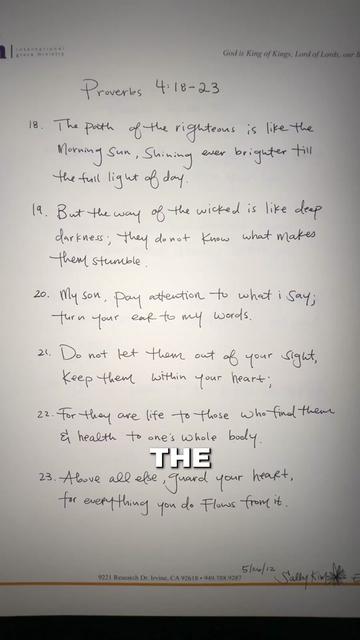 international
grace ministry
God is King of Kings, Lord of Lords, our
Proverbs 4:18-23
18. The path of the righteous is like the
Morning Sun, Shining ever brighter till
the full light of day.
19. But the way of the wicked is like deep
darkness; they do not know what makes
them stumble.
20. My son, pay attention to what i say;
turn your ear to my words.
21. Do not let them out of your sight,
Keep them within your heart;
22. For they are life to those who find them
& health to one's whole body.
THE
23. Above all else, guard your heart,
for everything you do Flows from it.
5/26/12
Sally Kim
9221 Research Dr. Irvine, CA 92618 • 949.788.9287